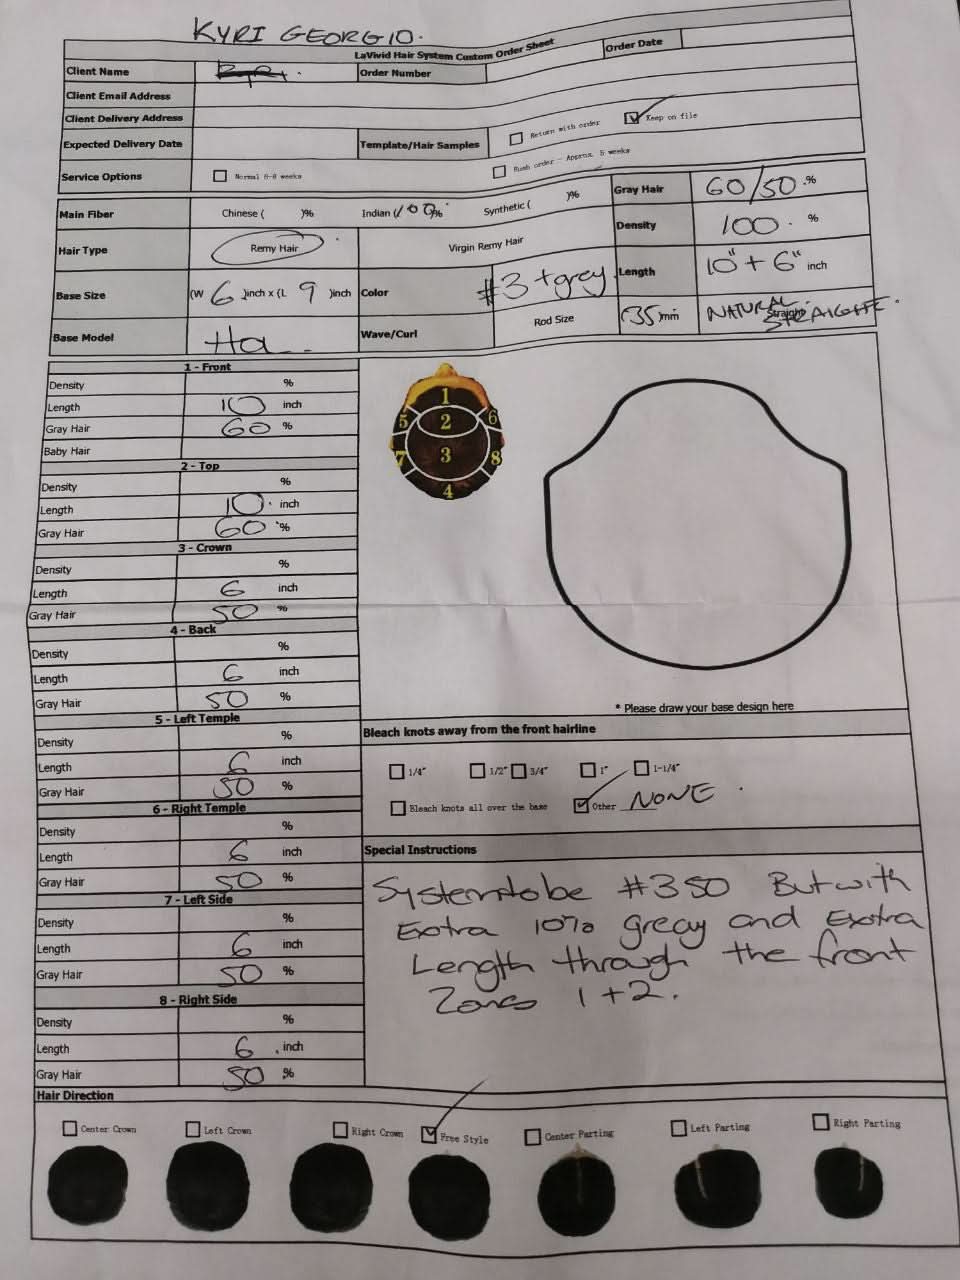 KYRI GEORGIO.
LaVivid Hair System Custom Order Sheet
Order Date
Client Name
Order Number
Client Email Address
Client Delivery Address
Expected Delivery Date
Template/Hair Samples
Return with order
Keep on file
Service Options
Normal 6-8 weeks
Rush order - Approx. 5 weeks
Main Fiber
Chinese ( )%
Indian (100)%
Synthetic ( )%
Gray Hair
60/50 %
Hair Type
Remy Hair
Virgin Remy Hair
Density
100 %
Base Size
(W 6 )inch x (L 9 )inch
Color
#3 + grey
Length
10" + 6" inch
Base Model
Wave/Curl
Rod Size
(35)mm
NATURAL
Straight
STRAIGHT.
1 - Front
Density %
Length 10 inch
Gray Hair 60 %
Baby Hair
2 - Top
Density %
Length 10 inch
Gray Hair 60 %
3 - Crown
Density %
Length 6 inch
Gray Hair 50 %
4 - Back
Density %
Length 6 inch
Gray Hair 50 %
5 - Left Temple
Density %
Length 6 inch
Gray Hair 50 %
6 - Right Temple
Density %
Length 6 inch
Gray Hair 50 %
7 - Left Side
Density %
Length 6 inch
Gray Hair 50 %
8 - Right Side
Density %
Length 6 inch
Gray Hair 50 %
1
5 2 6
7 3 8
4
* Please draw your base design here
Bleach knots away from the front hairline
1/4" 1/2" 3/4" 1" 1-1/4"
Bleach knots all over the base
Other NONE
Special Instructions
System to be #350 But with
Extra 10% greay and Extra
Length through the front
Zones 1+2.
Hair Direction
Center Crown
Left Crown
Right Crown
Free Style
Center Parting
Left Parting
Right Parting